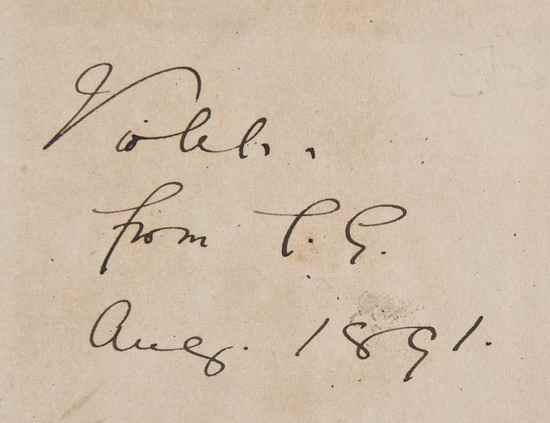 Violet.
from C. G.
Aug. 1891.